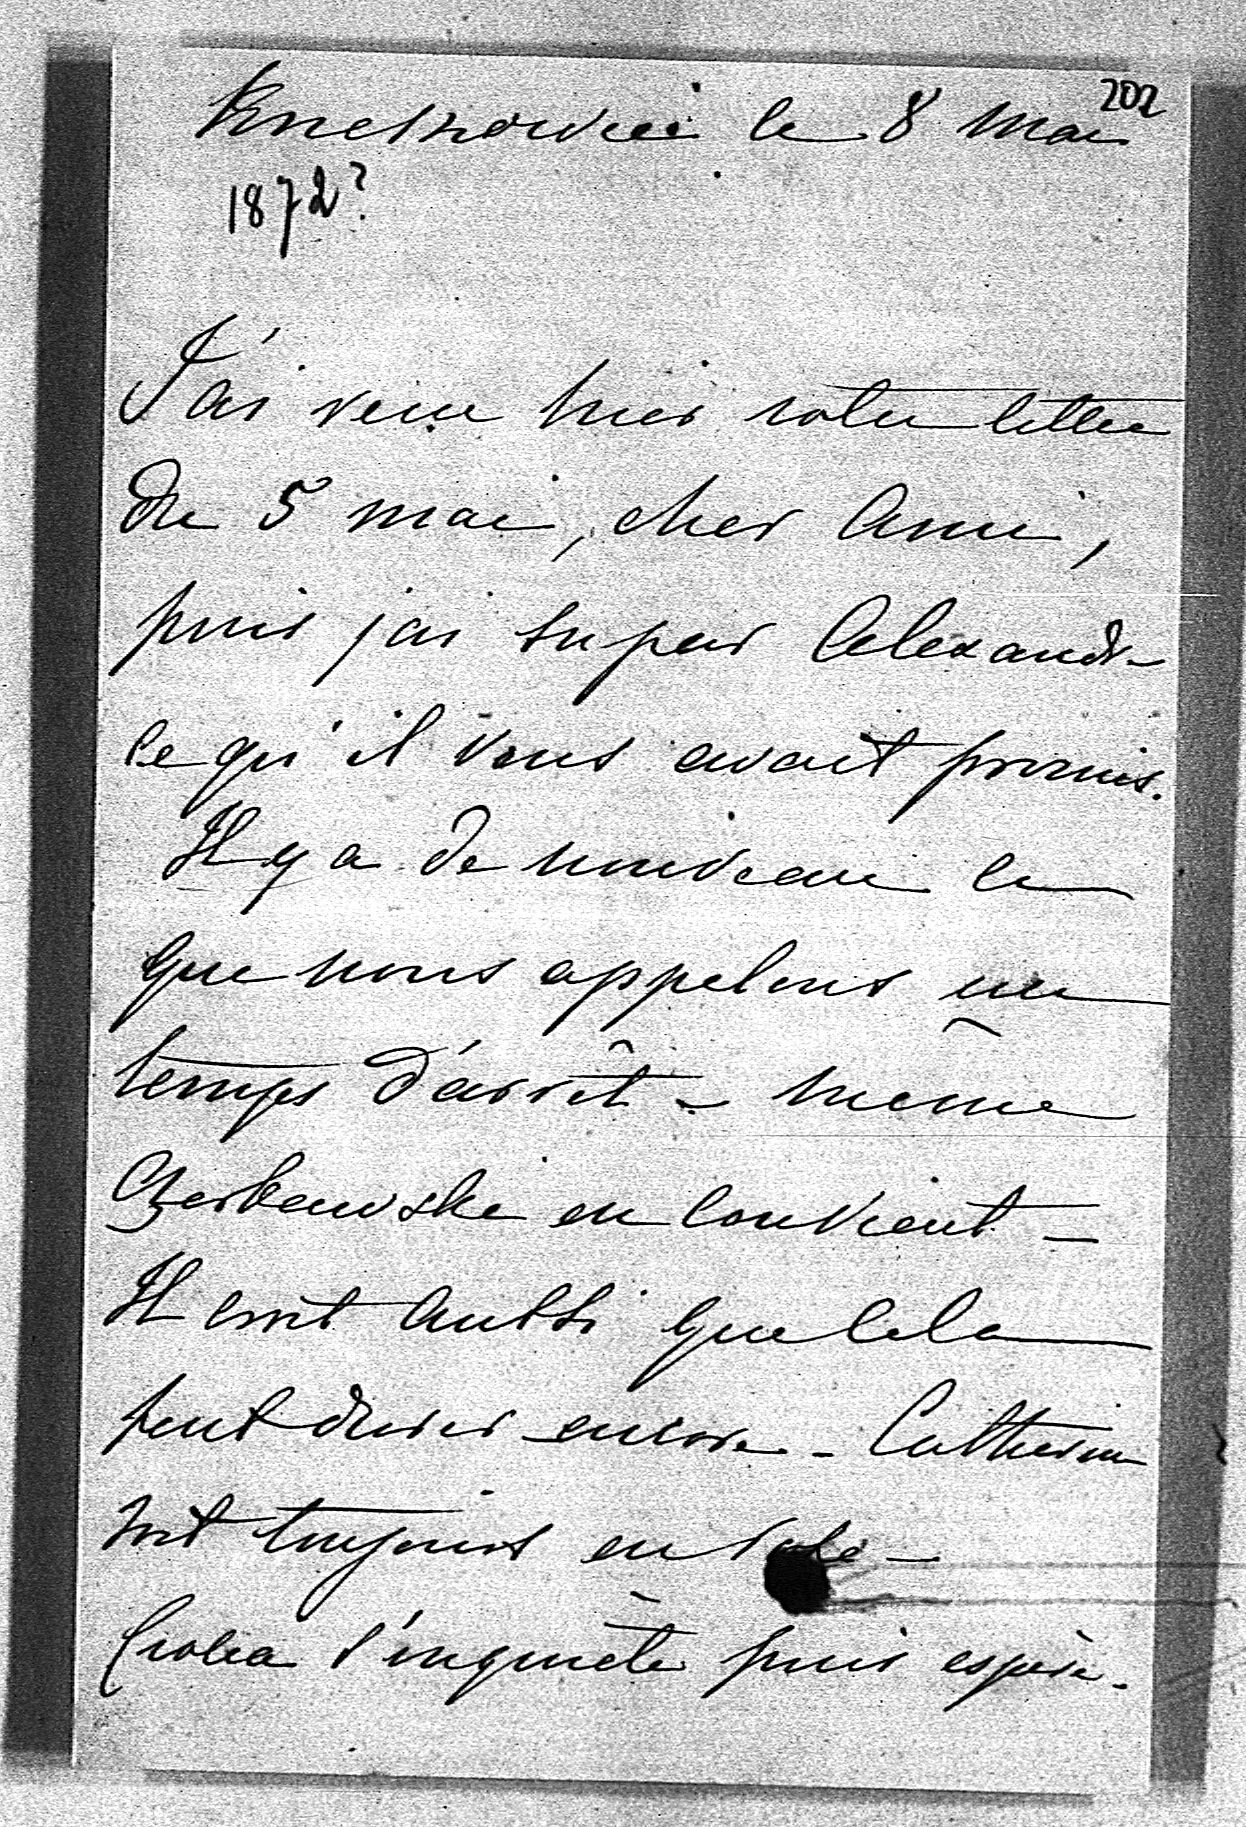 202
le 8 mai
1872?
J'ai reçu hier votre lettre
du 5 mai, cher Ami,
puis j'ai su par Alexandre
ce qu'il vous avait promis.
Il y a de nouveau ce
que nous appelons un
temps d'arrêt – même
en convient –
Il croit aussi que cela
peut durer encore – Catherine
voit toujours en rose –
s'inquiète puis espère.